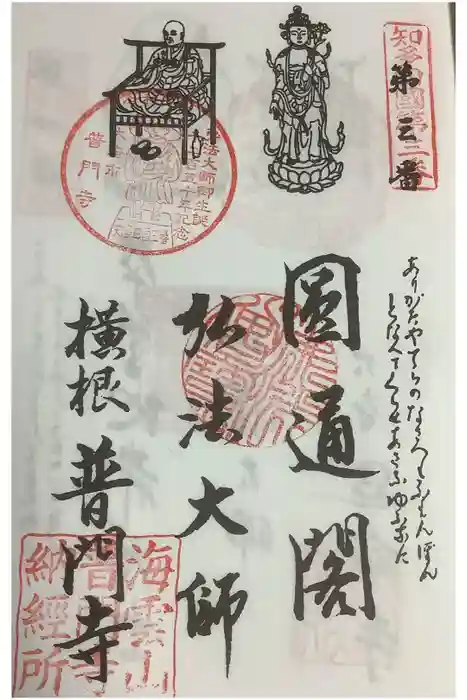 知多四國第三番
第三番
ありがたやてらのなさへもふもんぼん
となへてくらせあさにゆふなに
圓通閣
弘法大師
横根普門寺
法大師御生誕
五十年記念
普門寺
海雲山
普門寺
納經所